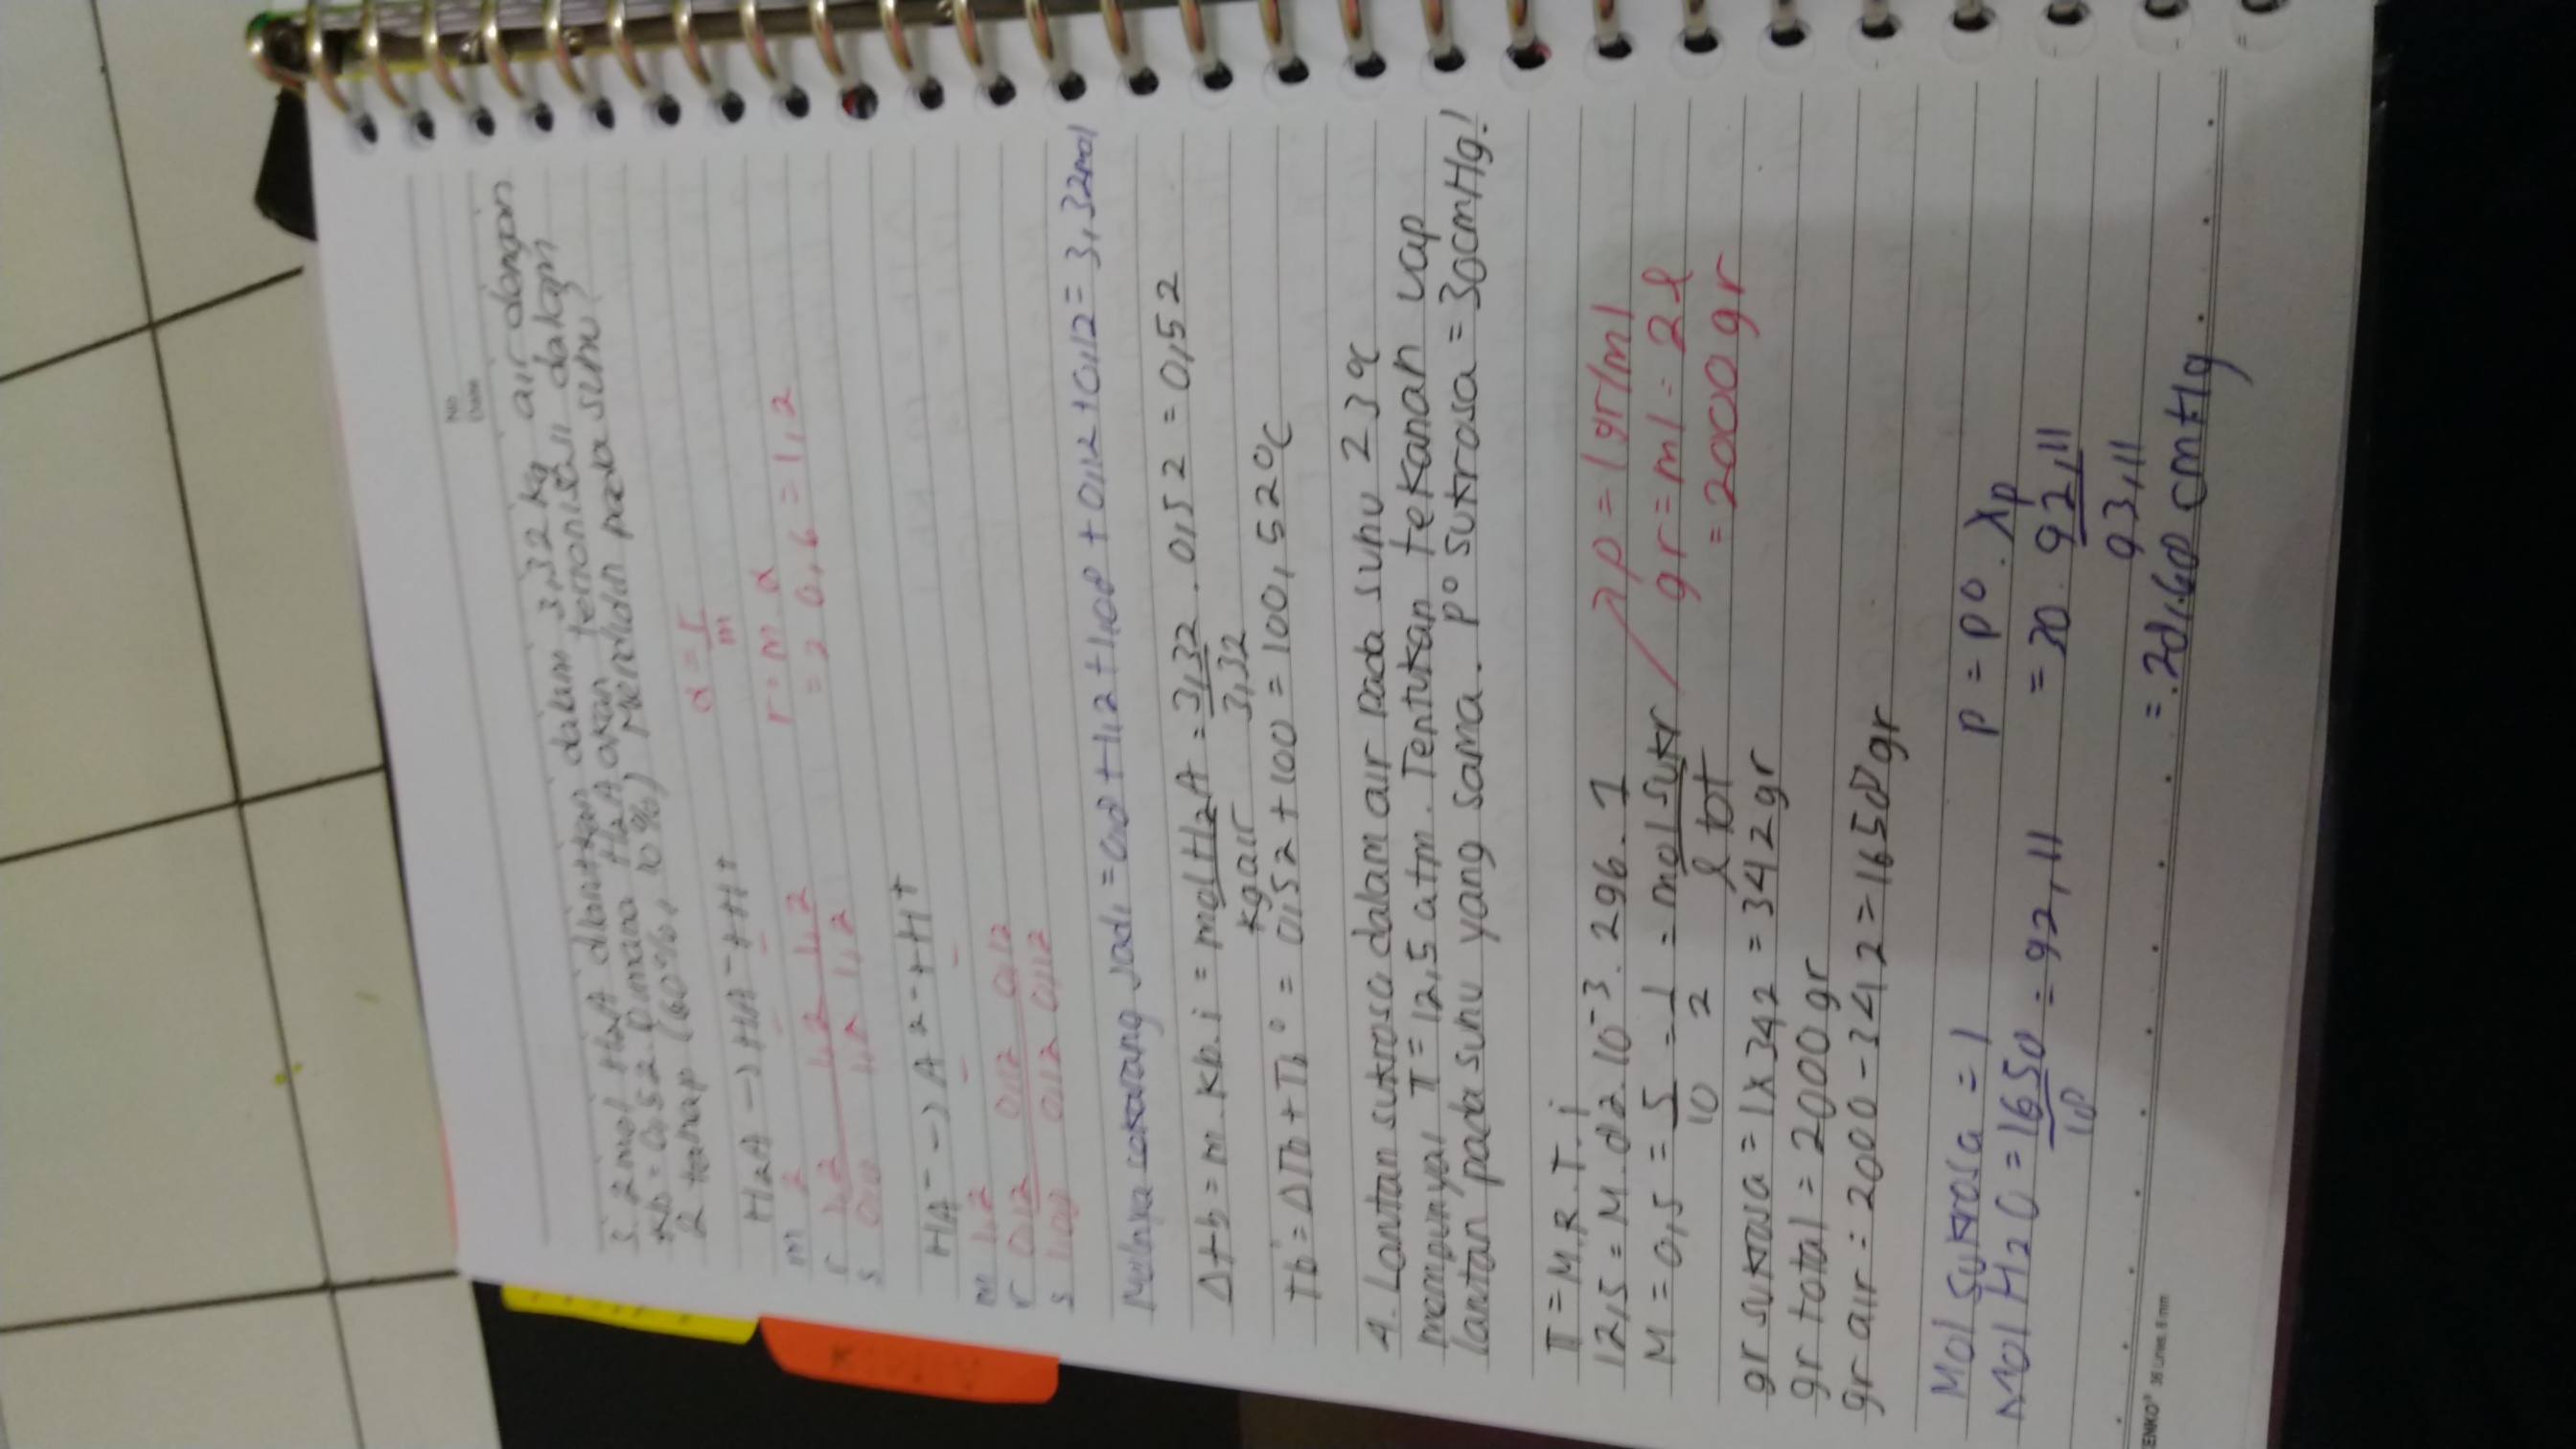 No
Date
3. 2 mol H2A dilarutkan dalam 3,32 kg air dengan
Kb = 0,52. Dimana H2A akan terionisasi dalam
2 tahap (60%, 10%) Mendidih pada suhu?
H2A → HA⁻ + H⁺ α = r/m
m 2 - - r = m . α
r 1,2 1,2 1,2 = 2 0,6 = 1,2
s 0,8 1,2 1,2
HA⁻ → A²⁻ + H⁺
m 1,2 - -
r 0,12 0,12 0,12
s 1,08 0,12 0,12
Molnya sekarang jadi = 0,8 + 1,2 + 1,08 + 0,12 + 0,12 = 3,32 mol
Δtb = m . Kb . i = mol H2A / kg air = 3,32 / 3,32 . 0,52 = 0,52
tb = ΔTb + Tb° = 0,52 + 100 = 100,52°C
4. Larutan sukrosa dalam air pada suhu 23°C
mempunyai π = 12,5 atm. Tentukan tekanan uap
larutan pada suhu yang sama. p° sukrosa = 30 cmHg!
π = M.R.T.i
12,5 = M . 82.10⁻³. 296. 1 → ρ = 1 gr/ml
M = 0,5 = 5/10 = 1/2 = mol sukr / l tot gr = ml = 2 l
= 2000 gr
gr sukrosa = 1 x 342 = 342 gr
gr total = 2000 gr
gr air = 2000 - 342 = 1658 gr
Mol sukrosa = 1 p = p° . Xp
Mol H2O = 1658 / 18 = 92,11 = 30 . 92,11 / 93,11
= 28,68 cmHg
ENKO® 36 Lines, 6 mm